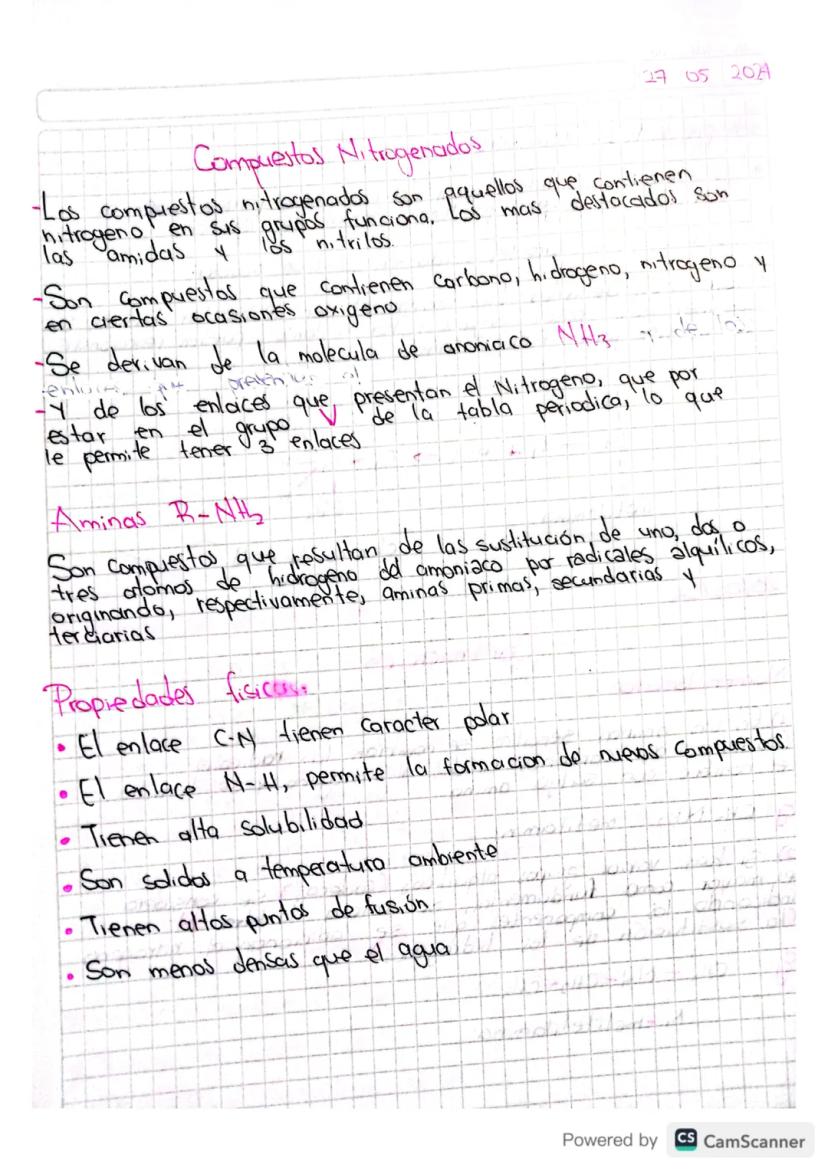 27 05 2021
Compuestos Nitrogenados
-Los compuestos nitrogenados son aquellos que contienen
nitrogeno en sus grupos funciona. Los mas destacados son
las amidas y los nitrilos.
-Son compuestos que contienen carbono, hidrogeno, nitrogeno y
en ciertas ocasiones oxigeno
-Se derivan de la molecula de amoniaco NH3 y de
-Y de los enlaces que presentan el Nitrogeno, que por
estar en el grupo V de la tabla periodica, lo que
le permite tener 3 enlaces
Aminas R-NH2
Son compuestos que resultan de las sustitución de uno, dos o
tres atomos de hidrogeno del amoniaco por radicales alquílicos,
originando, respectivamente, aminas primas, secundarias y
terciarias
Propiedades fisicas:
• El enlace C-N tienen caracter polar
• El enlace N-H, permite la formacion de nuevos compuestos
• Tienen alta solubilidad
• Son solidos a temperatura ambiente
• Tienen altos puntos de fusión
• Son menos densas que el agua
Powered by CS CamScanner